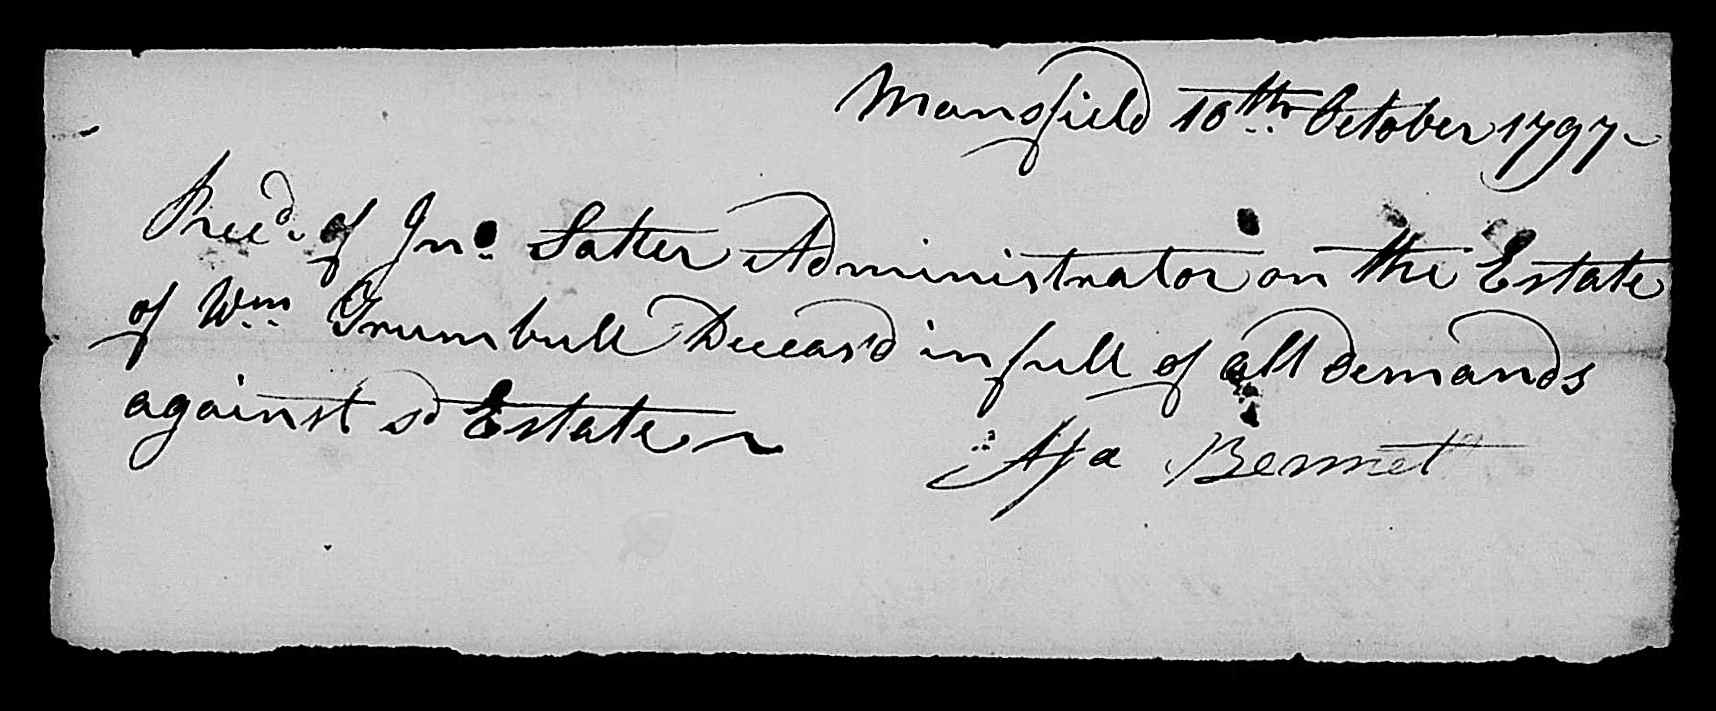 Mansfield 10th October 1797
Recd. of Jno. Salter Administrator on the Estate
of Wm. Trumbull Deceas'd in full of all demands
against sd Estate
Asa Bennet